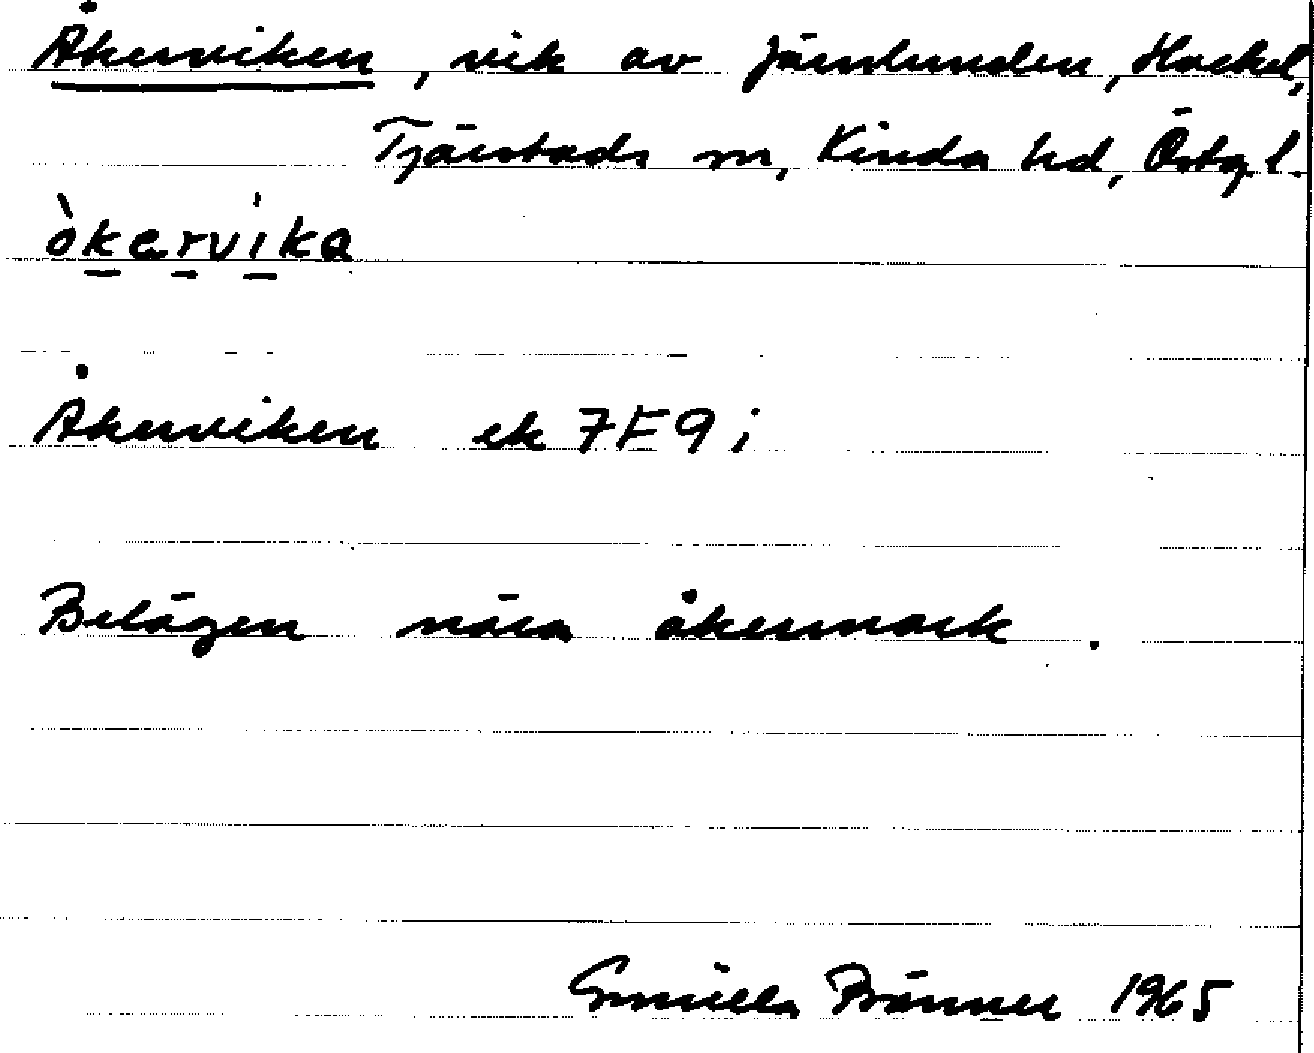 Åkerviken, vik av Järnlunden, Hackel,
Tjärstads sn, Kinda hd, Östg l.
òkervika
Åkerviken ek 7F9i
Belägen nära åkermark.
Gunilla Brånner 1965